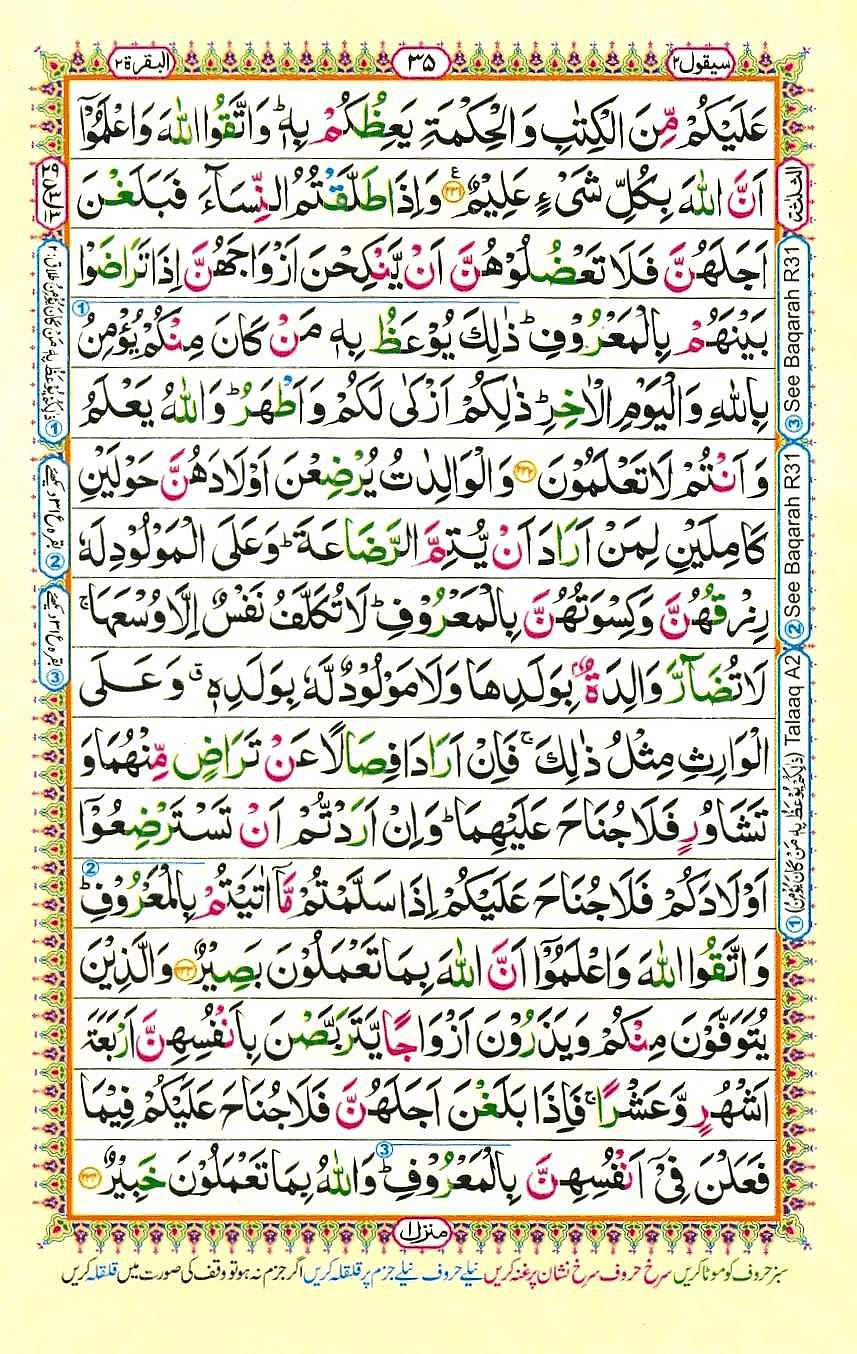 سيقول ٢
٣٥
البقرة ٢
عَلَيْكُمْ مِّنَ الْكِتٰبِ وَالْحِكْمَةِ يَعِظُكُمْ بِهٖ ؕ وَاتَّقُوا اللّٰهَ وَاعْلَمُوْۤا
اَنَّ اللّٰهَ بِكُلِّ شَىْءٍ عَلِيْمٌ ﴿۲۳۱﴾ وَاِذَا طَلَّقْتُمُ النِّسَآءَ فَبَلَغْنَ
اَجَلَهُنَّ فَلَا تَعْضُلُوْهُنَّ اَنْ يَّنْكِحْنَ اَزْوَاجَهُنَّ اِذَا تَرَاضَوْا
بَيْنَهُمْ بِالْمَعْرُوْفِ ؕ ذٰلِكَ يُوْعَظُ بِهٖ مَنْ كَانَ مِنْكُمْ يُؤْمِنُ
بِاللّٰهِ وَالْيَوْمِ الْاٰخِرِ ؕ ذٰلِكُمْ اَزْكٰى لَكُمْ وَاَطْهَرُ ؕ وَاللّٰهُ يَعْلَمُ
وَاَنْتُمْ لَا تَعْلَمُوْنَ ﴿۲۳۲﴾ وَالْوَالِدٰتُ يُرْضِعْنَ اَوْلَادَهُنَّ حَوْلَيْنِ
كَامِلَيْنِ لِمَنْ اَرَادَ اَنْ يُّتِمَّ الرَّضَاعَةَ ؕ وَعَلَى الْمَوْلُوْدِ لَهٗ
رِزْقُهُنَّ وَكِسْوَتُهُنَّ بِالْمَعْرُوْفِ ؕ لَا تُكَلَّفُ نَفْسٌ اِلَّا وُسْعَهَا ۚ
لَا تُضَآرَّ وَالِدَةٌۢ بِوَلَدِهَا وَلَا مَوْلُوْدٌ لَّهٗ بِوَلَدِهٖ ۗ وَعَلَى
الْوَارِثِ مِثْلُ ذٰلِكَ ۚ فَاِنْ اَرَادَا فِصَالًا عَنْ تَرَاضٍ مِّنْهُمَا وَ
تَشَاوُرٍ فَلَا جُنَاحَ عَلَيْهِمَا ؕ وَاِنْ اَرَدْتُّمْ اَنْ تَسْتَرْضِعُوْۤا
اَوْلَادَكُمْ فَلَا جُنَاحَ عَلَيْكُمْ اِذَا سَلَّمْتُمْ مَّاۤ اٰتَيْتُمْ بِالْمَعْرُوْفِ ؕ
وَاتَّقُوا اللّٰهَ وَاعْلَمُوْۤا اَنَّ اللّٰهَ بِمَا تَعْمَلُوْنَ بَصِيْرٌ ﴿۲۳۳﴾ وَالَّذِيْنَ
يُتَوَفَّوْنَ مِنْكُمْ وَيَذَرُوْنَ اَزْوَاجًا يَّتَرَبَّصْنَ بِاَنْفُسِهِنَّ اَرْبَعَةَ
اَشْهُرٍ وَّعَشْرًا ۚ فَاِذَا بَلَغْنَ اَجَلَهُنَّ فَلَا جُنَاحَ عَلَيْكُمْ فِيْمَا
فَعَلْنَ فِىْۤ اَنْفُسِهِنَّ بِالْمَعْرُوْفِ ؕ وَاللّٰهُ بِمَا تَعْمَلُوْنَ خَبِيْرٌ ﴿۲۳۴﴾
منزل ۱
سبز حروف کو موٹا کریں سرخ حروف سرخ نشان پر غنہ کریں نیلے حروف نیلے جزم پر قلقلہ کریں اگر جزم نہ ہو تو وقف کی صورت میں قلقلہ کریں
الثلثة
③ See Baqarah R31
② See Baqarah R31
① (ذٰلِكُمْ يُوْعَظُ بِهٖ مَنْ كَانَ يُؤْمِنُ) Talaaq A2
① ذٰلِكُمْ يُوْعَظُ بِهٖ مَنْ كَانَ يُؤْمِنُ طلاق: ۲
② بقرہ ع ۳۱ دیکھیے
③ بقرہ ع ۳۱ دیکھیے